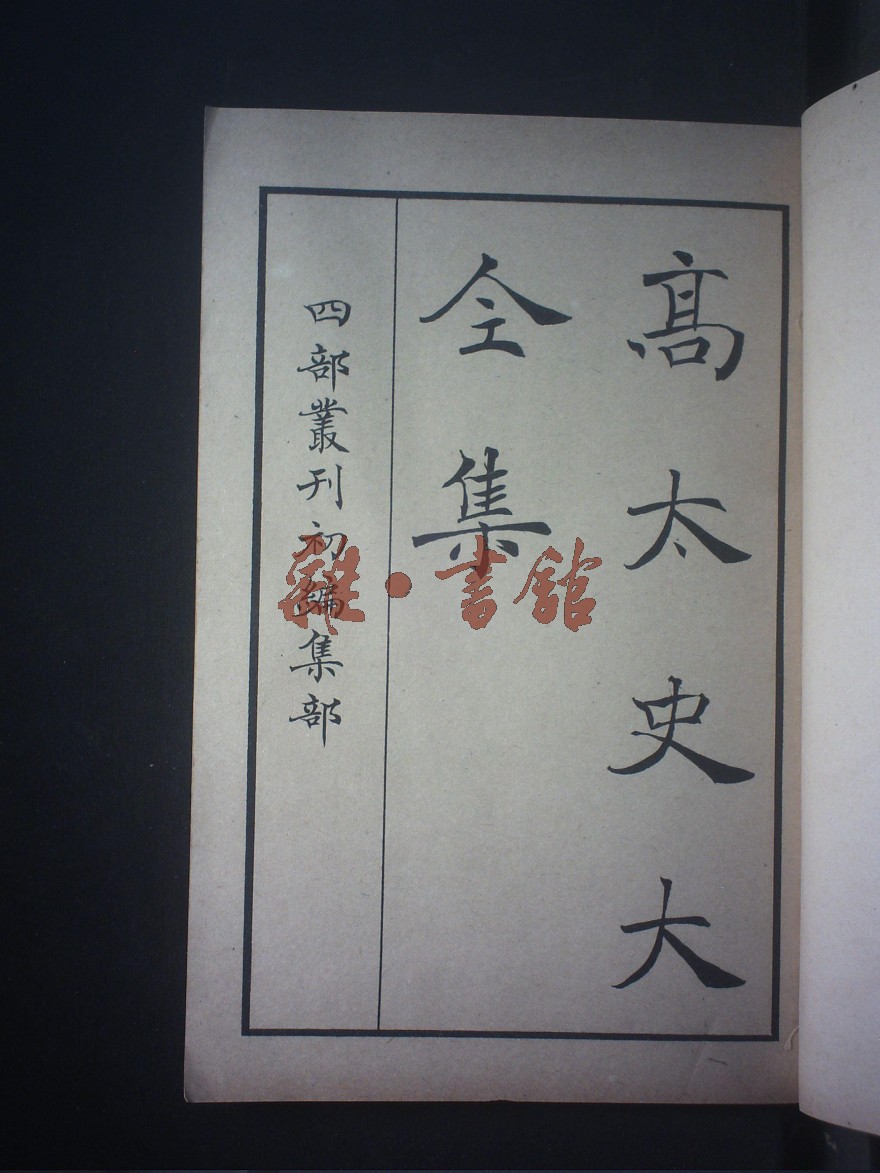 髙太史大
全集
四部叢刊初編集部
雒·書館